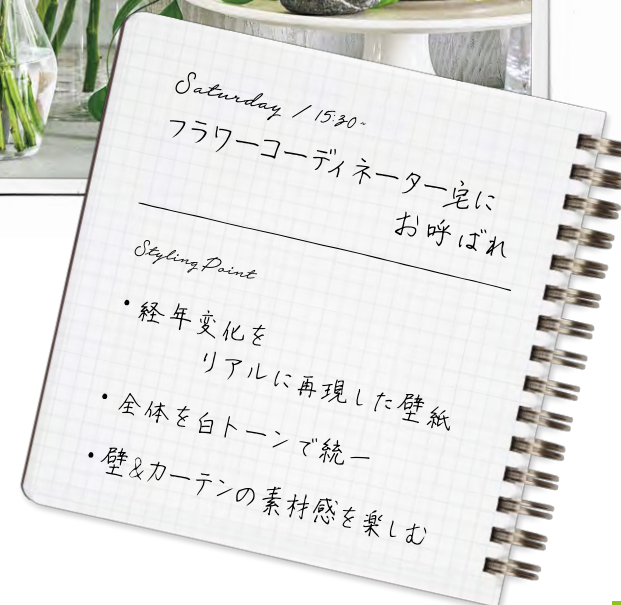 Saturday / 15:30~
フラワーコーディネーター宅に
お呼ばれ
Styling Point
・経年変化を
リアルに再現した壁紙
・全体を白トーンで統一
・壁&カーテンの素材感を楽しむ